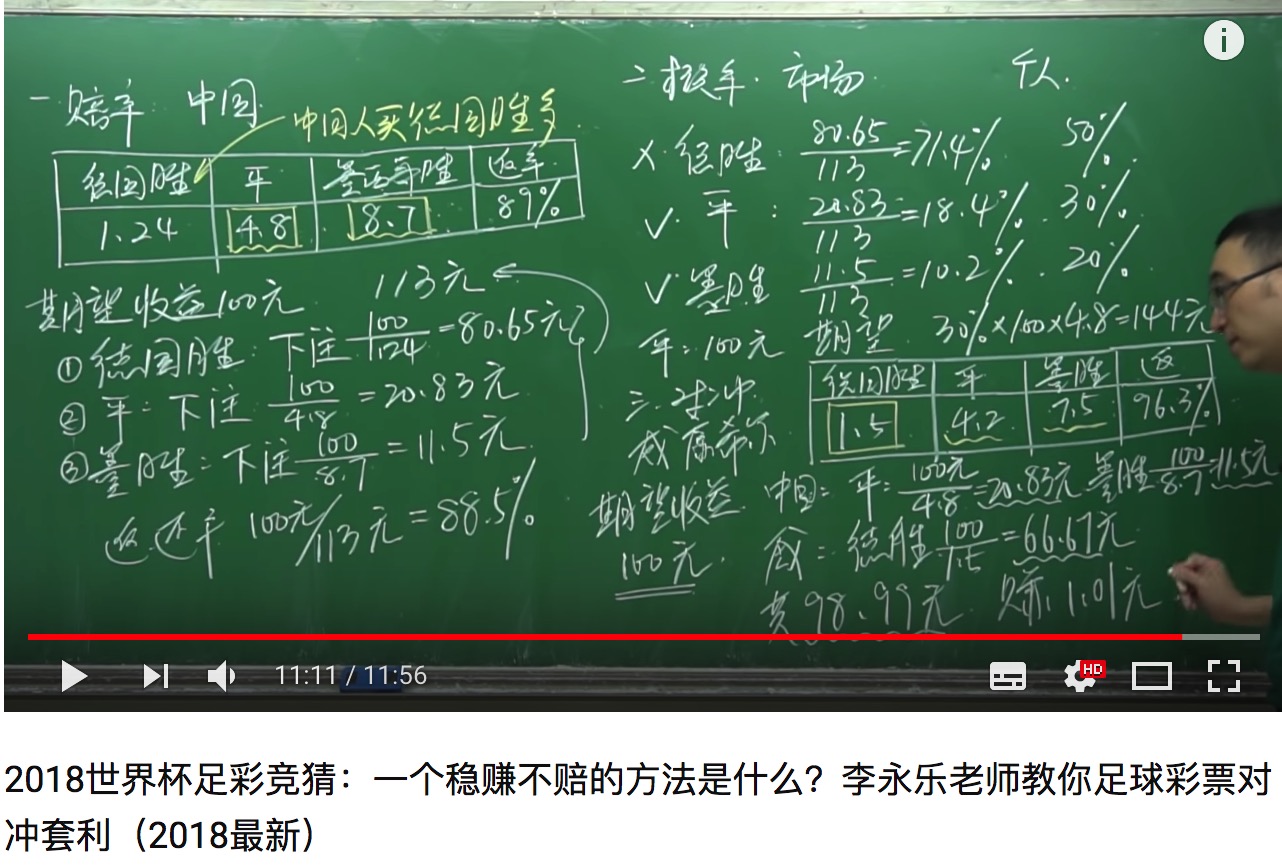 一.赔率. 中国.
中国人买德国胜多.
德国胜 平 墨西哥胜 返率
1.24 4.8 8.7 89%
期望收益100元. 113元
① 德国胜: 下注 100/1.24 = 80.65元
② 平: 下注 100/4.8 = 20.83元
③ 墨胜: 下注 100/8.7 = 11.5元.
返还率 100元/113元 = 88.5%
二.概率. 市场. 个人.
× 德胜: 80.65/113 = 71.4% 50%.
√. 平: 20.83/113 = 18.4%. 30%.
√ 墨胜 11.5/113 = 10.2%. 20%.
平: 100元 期望 30%×100×4.8=144元
三.对冲
威廉希尔
德国胜 平 墨胜 返
1.5 4.2 7.5 96.3%
期望收益
100元.
中国: 平: 100元/4.8 = 20.83元 墨胜 100/8.7 = 11.5元
威: 德胜 100/1.5 = 66.67元
共 98.99元. 赚 1.01元
11:11 / 11:56
HD
2018世界杯足彩竞猜：一个稳赚不赔的方法是什么？李永乐老师教你足球彩票对
冲套利（2018最新）